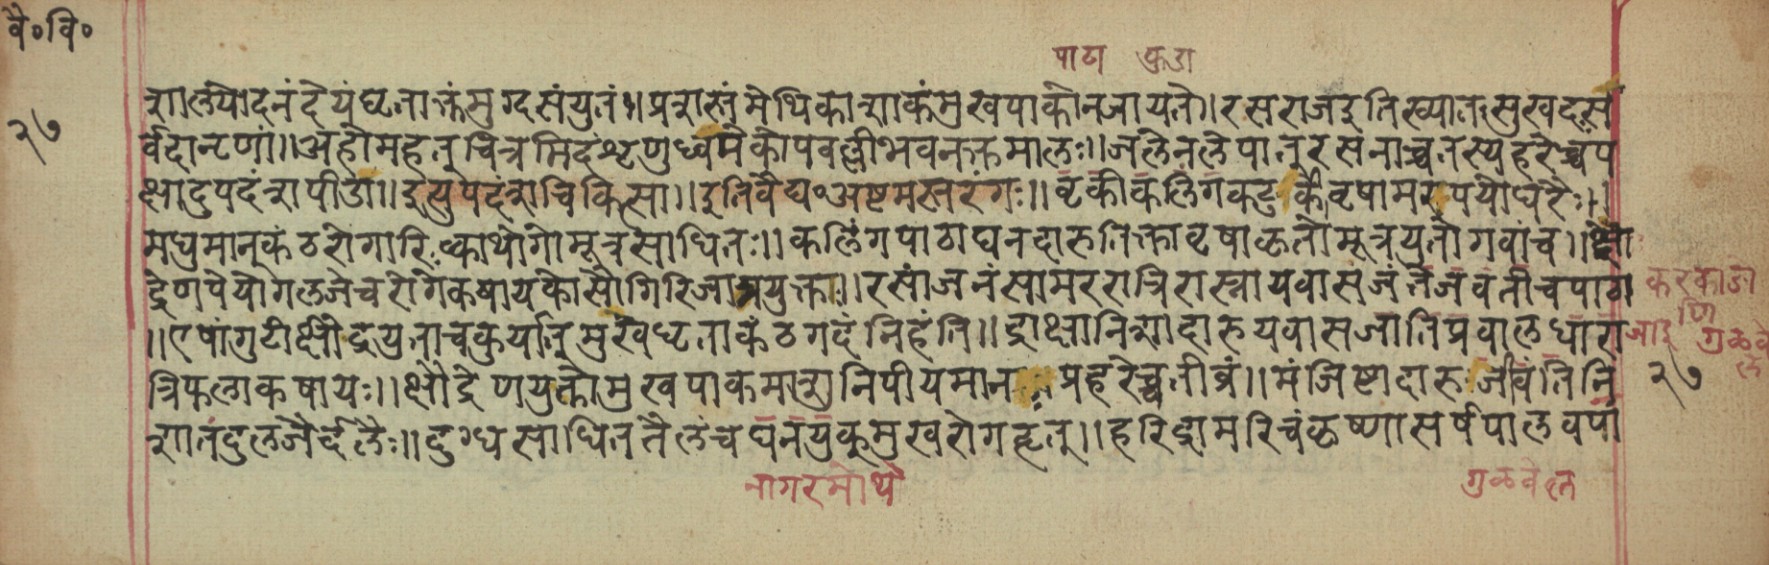 वै॰वि॰
पाठा कुडा
२७
शाल्योदनं देयं घृताक्तं मुग्दसंयुतं॥ प्रशस्तं मेथिकाशाकं मुखपाको न जायते॥ रसराज इति ख्यातः सुखदः स
र्वदा नृणां॥ अहो महत् चित्रमिदं शृणुध्वमेकोपवल्लीभवनक्तमालः॥ जलेन लेपात् रसनाच्च तस्य हरेच्च प
क्षादुपदंशपीडा॥ इत्युपदंशचिकित्सा॥ इति वैद्य॰ अष्टमस्तरंगः॥ वृकीकलिंगकटुकै वृषामरपयोधरैः॥
मधुमान् कंठरोगारिः क्वाथो गोमूत्रसाधितः॥ कलिंगपाठाघनदारुतिक्तावृषाकृतो मूत्रयुतो गवां च॥ क्षौ
द्रेण पेयो गलजे च रोगे कषायकोसौ गिरिजाप्रयुक्तः॥ रसांजनं सामररात्रिरास्नायवासजं तेजवती च पाठा
॥ एषां गुटी क्षौद्रयुता च कुर्यात् मुखे धृता कंठगदं निहंति॥ द्राक्षानिशादारुयवासजातिप्रवालधारा
त्रिफलाकषायः॥ क्षौद्रेण युक्तो मुखपाकमाशु निपीयमानः प्रहरेच्च तीव्रं॥ मंजिष्टादारुजीवंतिनि
शातंदुलजैर्दलैः॥ दुग्धसाधिततैलं च घनयुक् मुखरोगहृत्॥ हरिद्रामरिचं कृष्णासर्षपालवपां
२७
नागरमोथे
गुळवेल